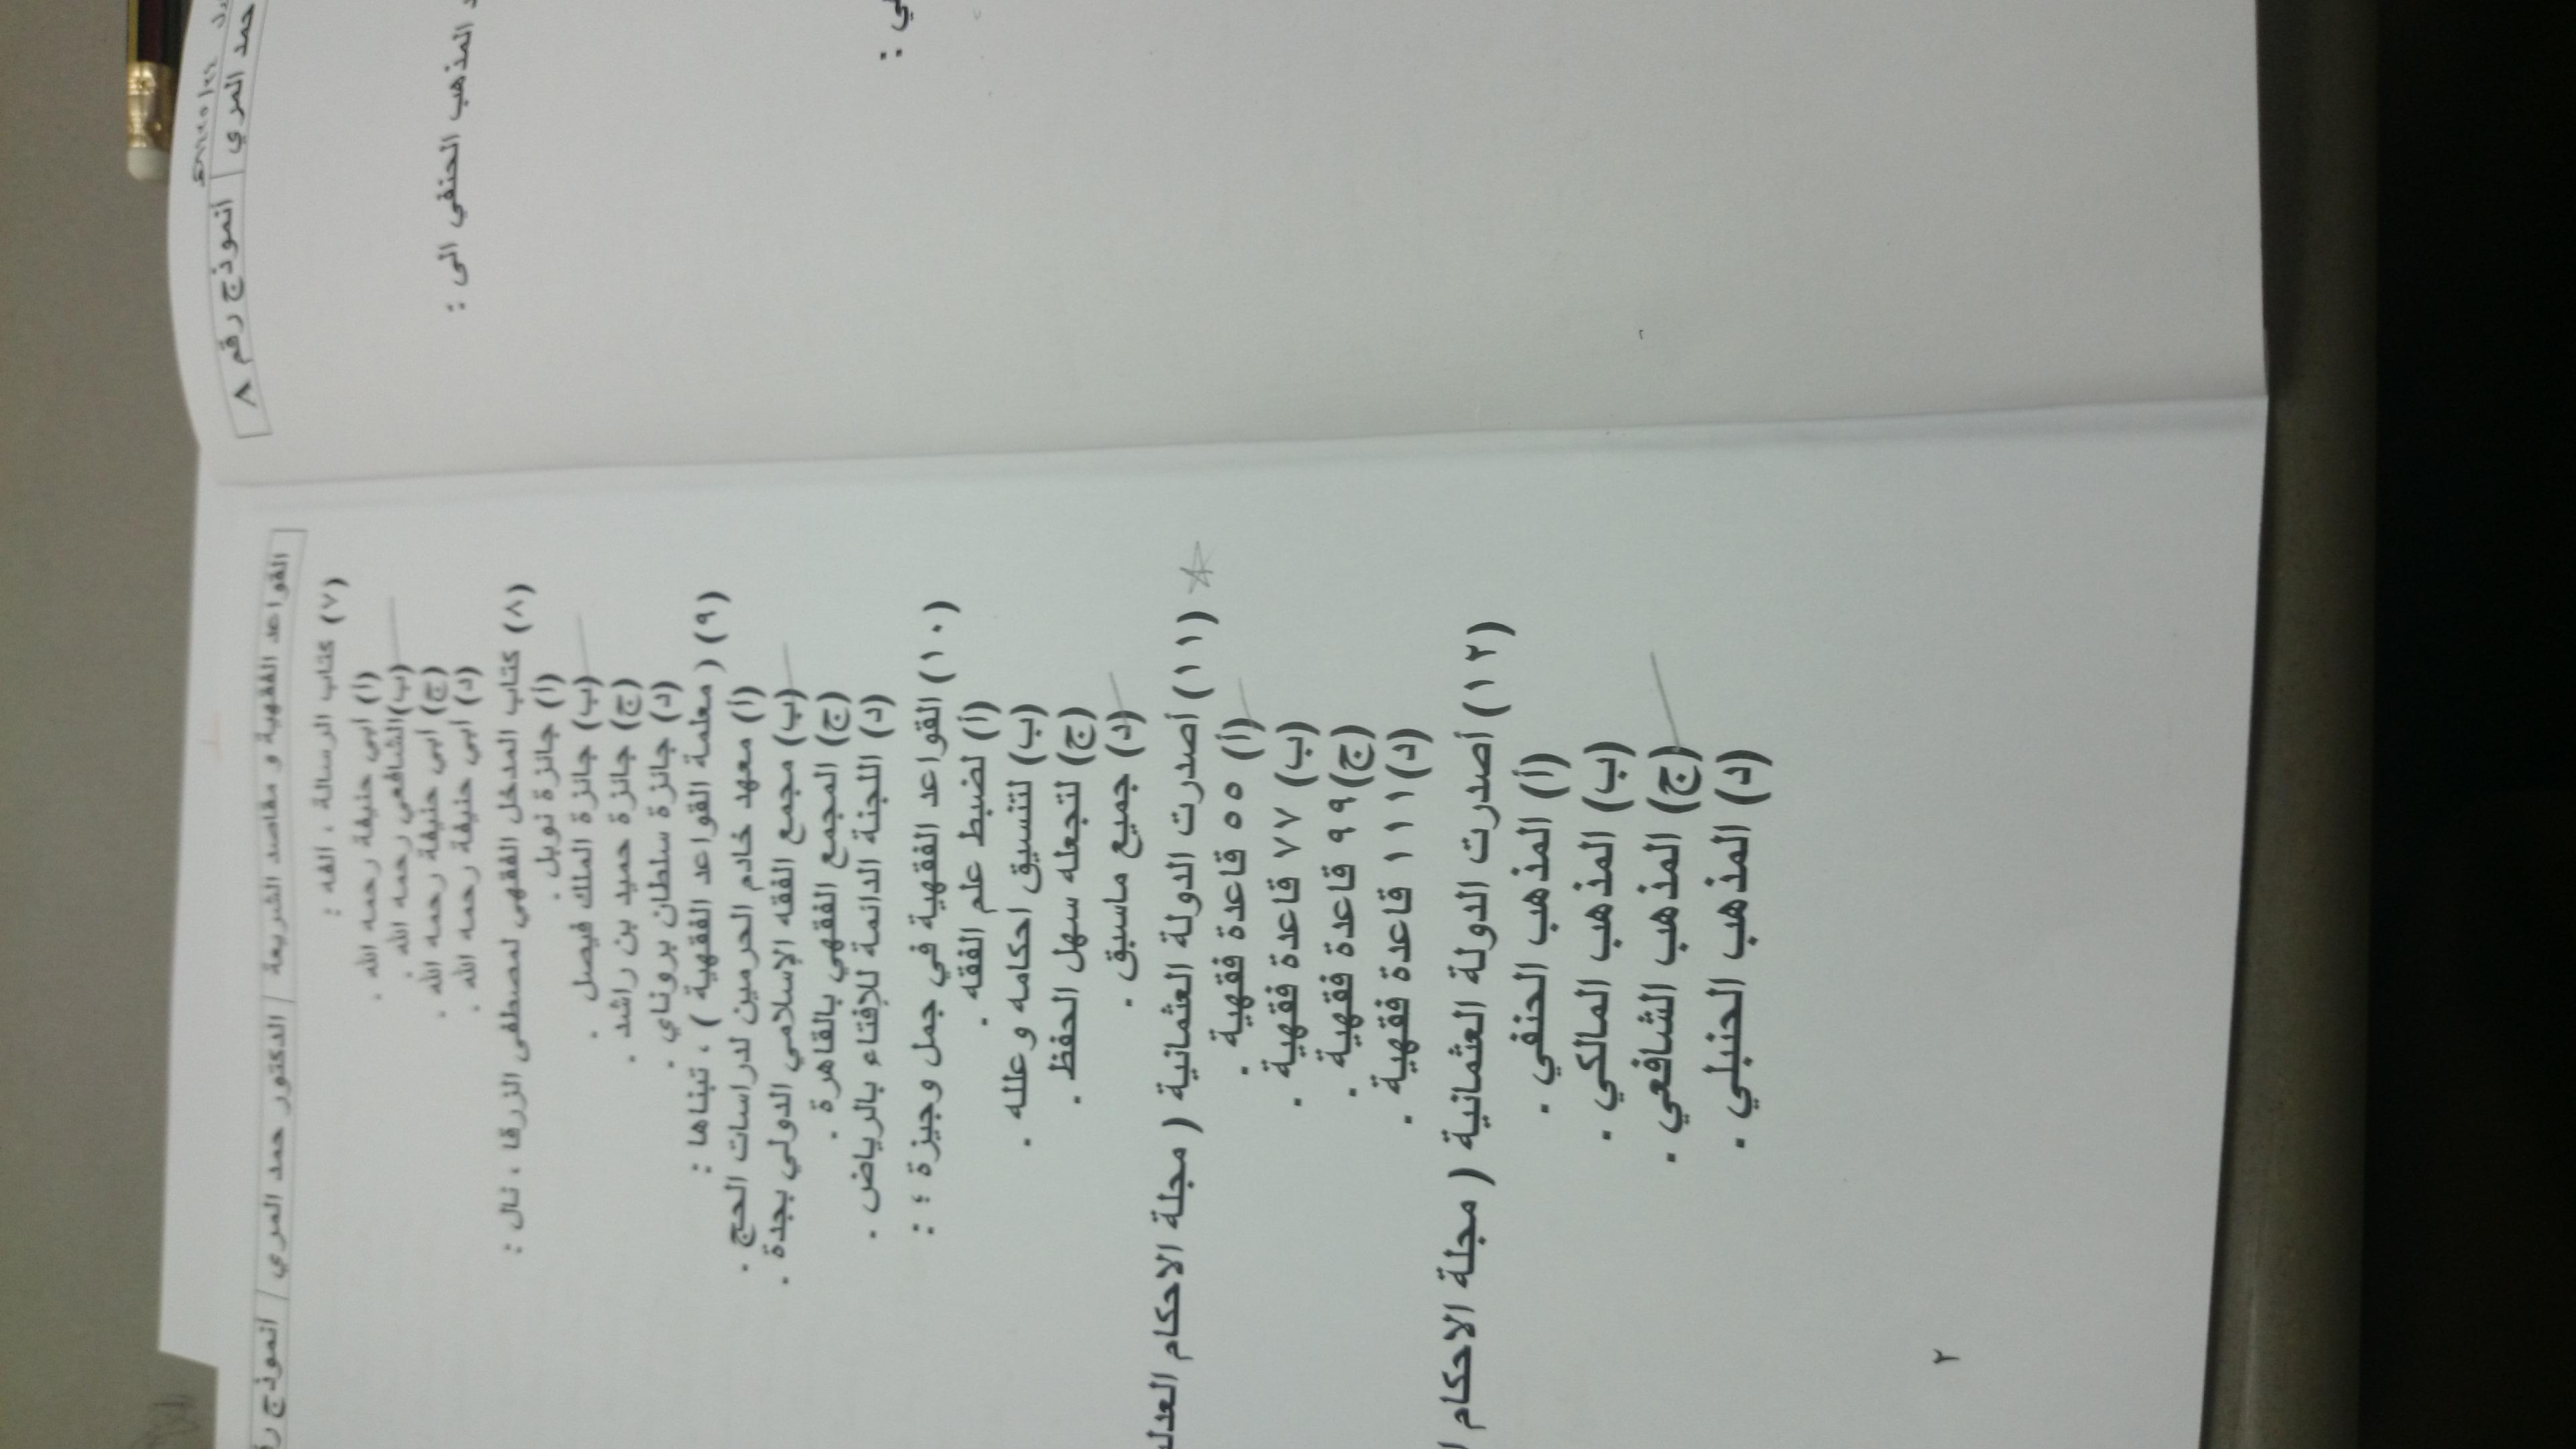 القواعد الفقهية و مقاصد الشريعة / الدكتور حمد المري / انموذج
(٧) كتاب الرسالة ، الفه :
(أ) ابي حنيفة رحمه الله .
(ب) الشافعي رحمه الله .
(ج) ابي حنيفة رحمه الله .
(د) ابي حنيفة رحمه الله .
(٨) كتاب المدخل الفقهي لمصطفى الزرقا ، نال :
(أ) جائزة نوبل .
(ب) جائزة الملك فيصل .
(ج) جائزة حميد بن راشد .
(د) جائزة سلطان بروناي .
(٩) ( معلمة القواعد الفقهية ) ، تبناها :
(أ) معهد خادم الحرمين لدراسات الحج .
(ب) مجمع الفقه الإسلامي الدولي بجدة .
(ج) المجمع الفقهي بالقاهرة .
(د) اللجنة الدائمة للإفتاء بالرياض .
(١٠) القواعد الفقهية في جمل وجيزة ؛ :
(أ) لضبط علم الفقه .
(ب) لتنسيق احكامه وعلله .
(ج) لتجعله سهل الحفظ .
(د) جميع ماسبق .
(١١) أصدرت الدولة العثمانية ( مجلة الاحكام
(أ) ٥٥ قاعدة فقهية .
(ب) ٧٧ قاعدة فقهية .
(ج) ٩٩ قاعدة فقهية .
(د) ١١١ قاعدة فقهية .
(١٢) أصدرت الدولة العثمانية ( مجلة الاحكام
(أ) المذهب الحنفي .
(ب) المذهب المالكي .
(ج) المذهب الشافعي .
(د) المذهب الحنبلي .
٢
حمد المري / أنموذج رقم ٨
المذهب الحنفي الى :